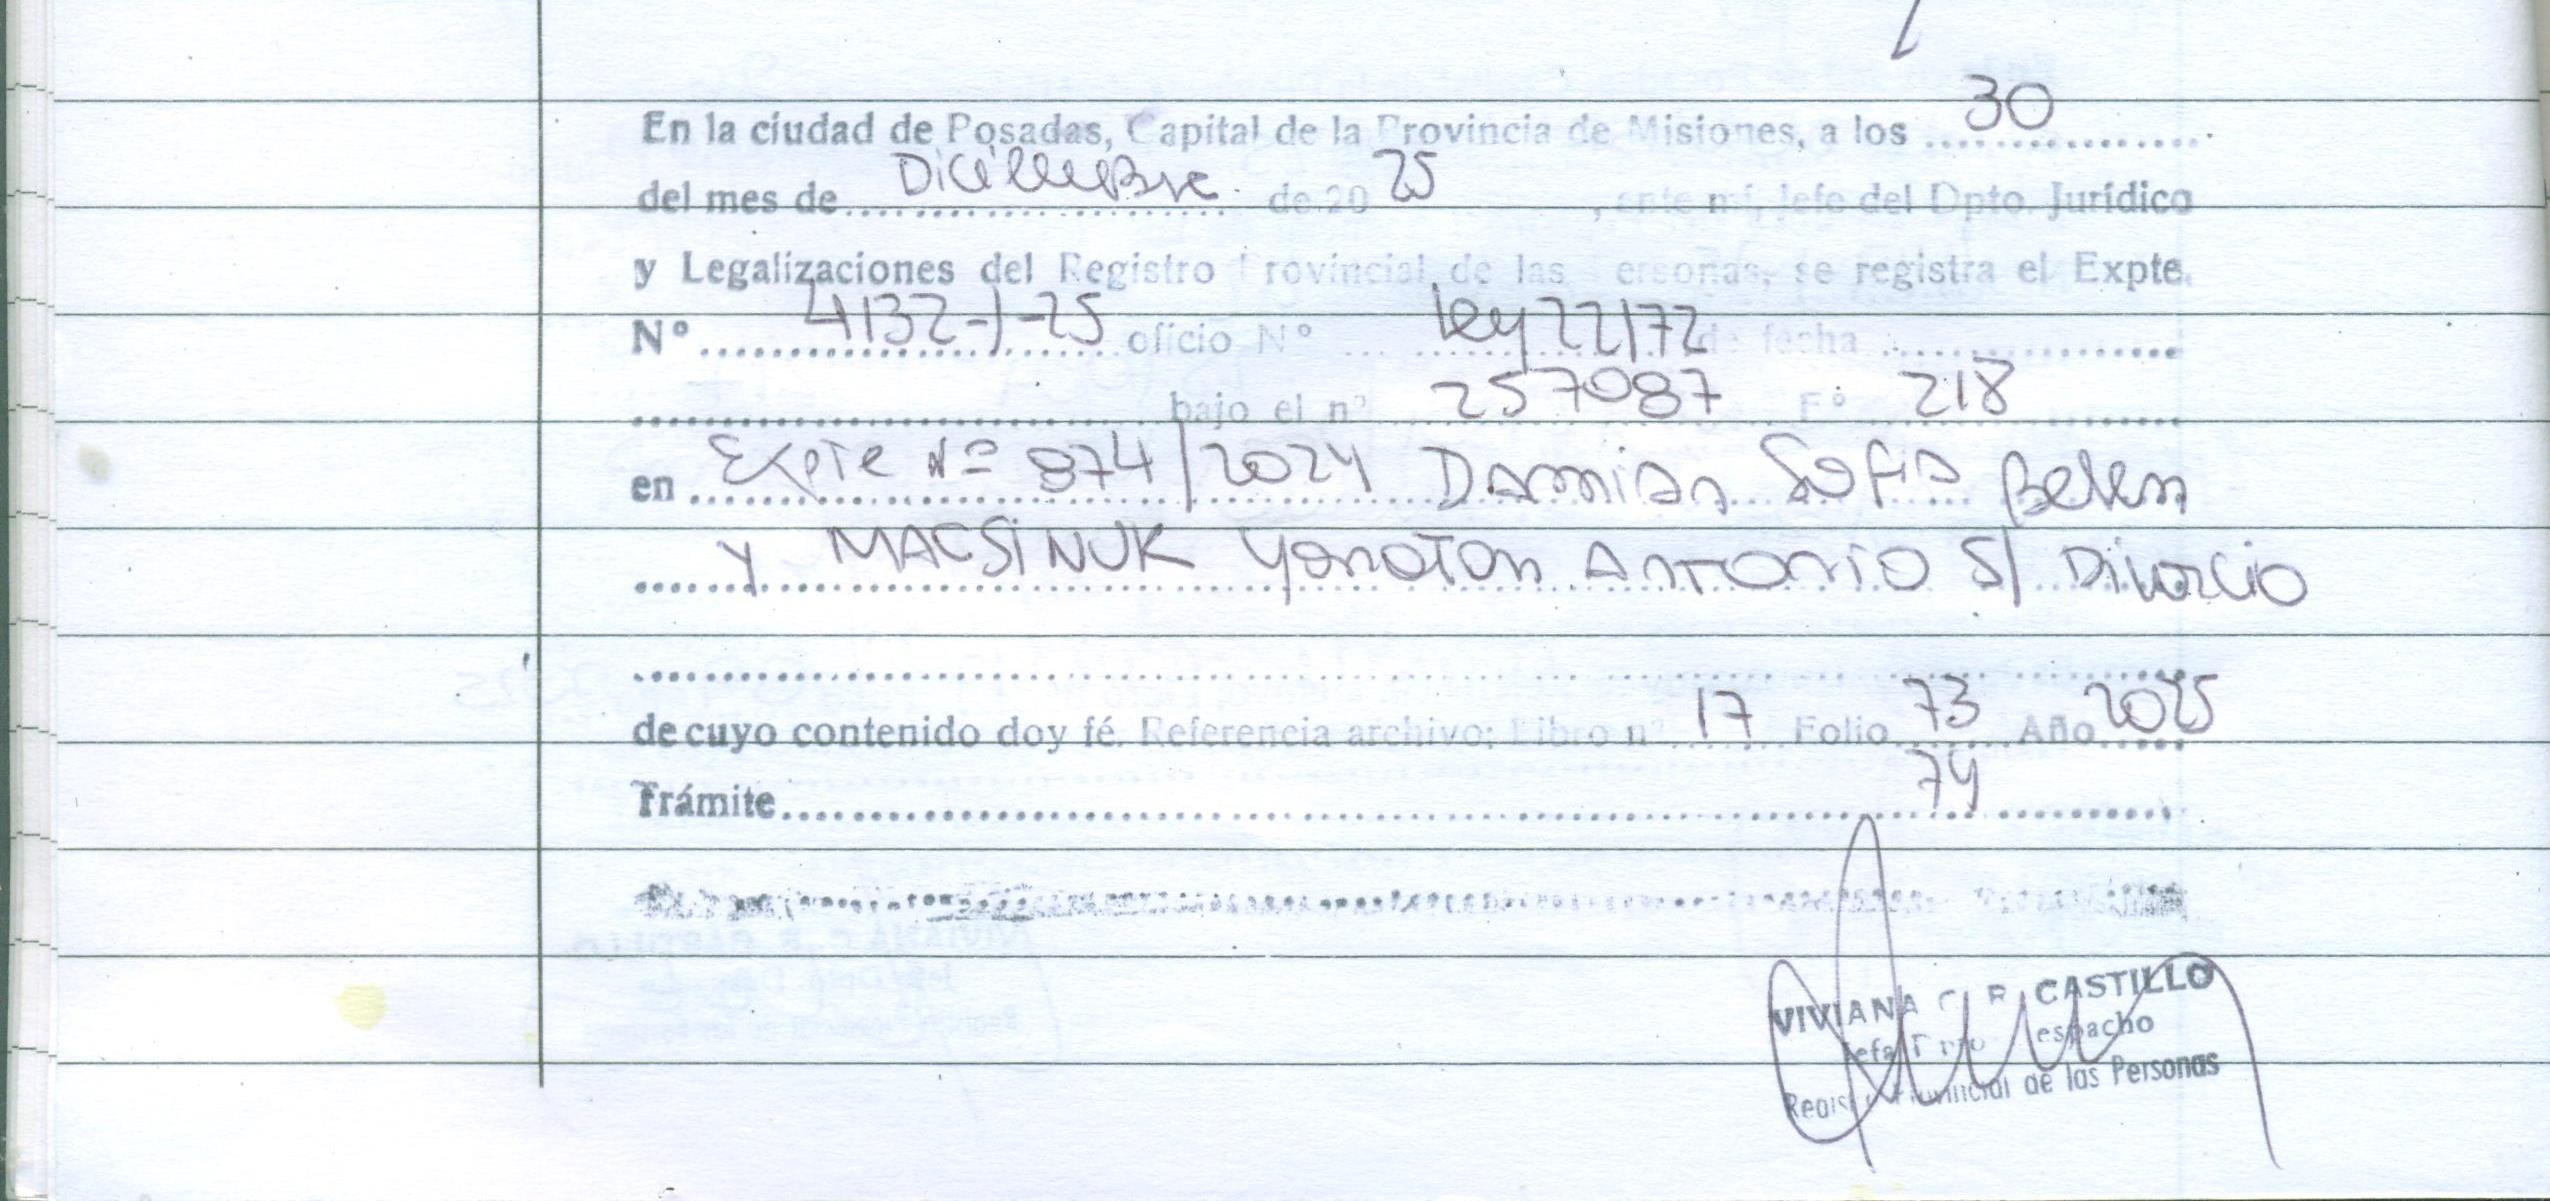 En la ciudad de Posadas, Capital de la Provincia de Misiones, a los 30
del mes de Diciembre de 20 25, ante mí, Jefe del Dpto. Jurídico
y Legalizaciones del Registro Provincial de las Personas, se registra el Expte.
Nº 4132-J-25 oficio Nº Ley 22172 de fecha
bajo el nº 257087 Fº 218
en Expte Nº 874/2024 Damian Sofia Belen
y MACSINUK Yonoton Antonio S/ Divorcio
de cuyo contenido doy fé. Referencia archivo: Libro nº 17 Folio 73 Año 2025
Trámite 74
VIVIANA C. R. CASTILLO
Jefa Dpto. Despacho
Registro Provincial de las Personas